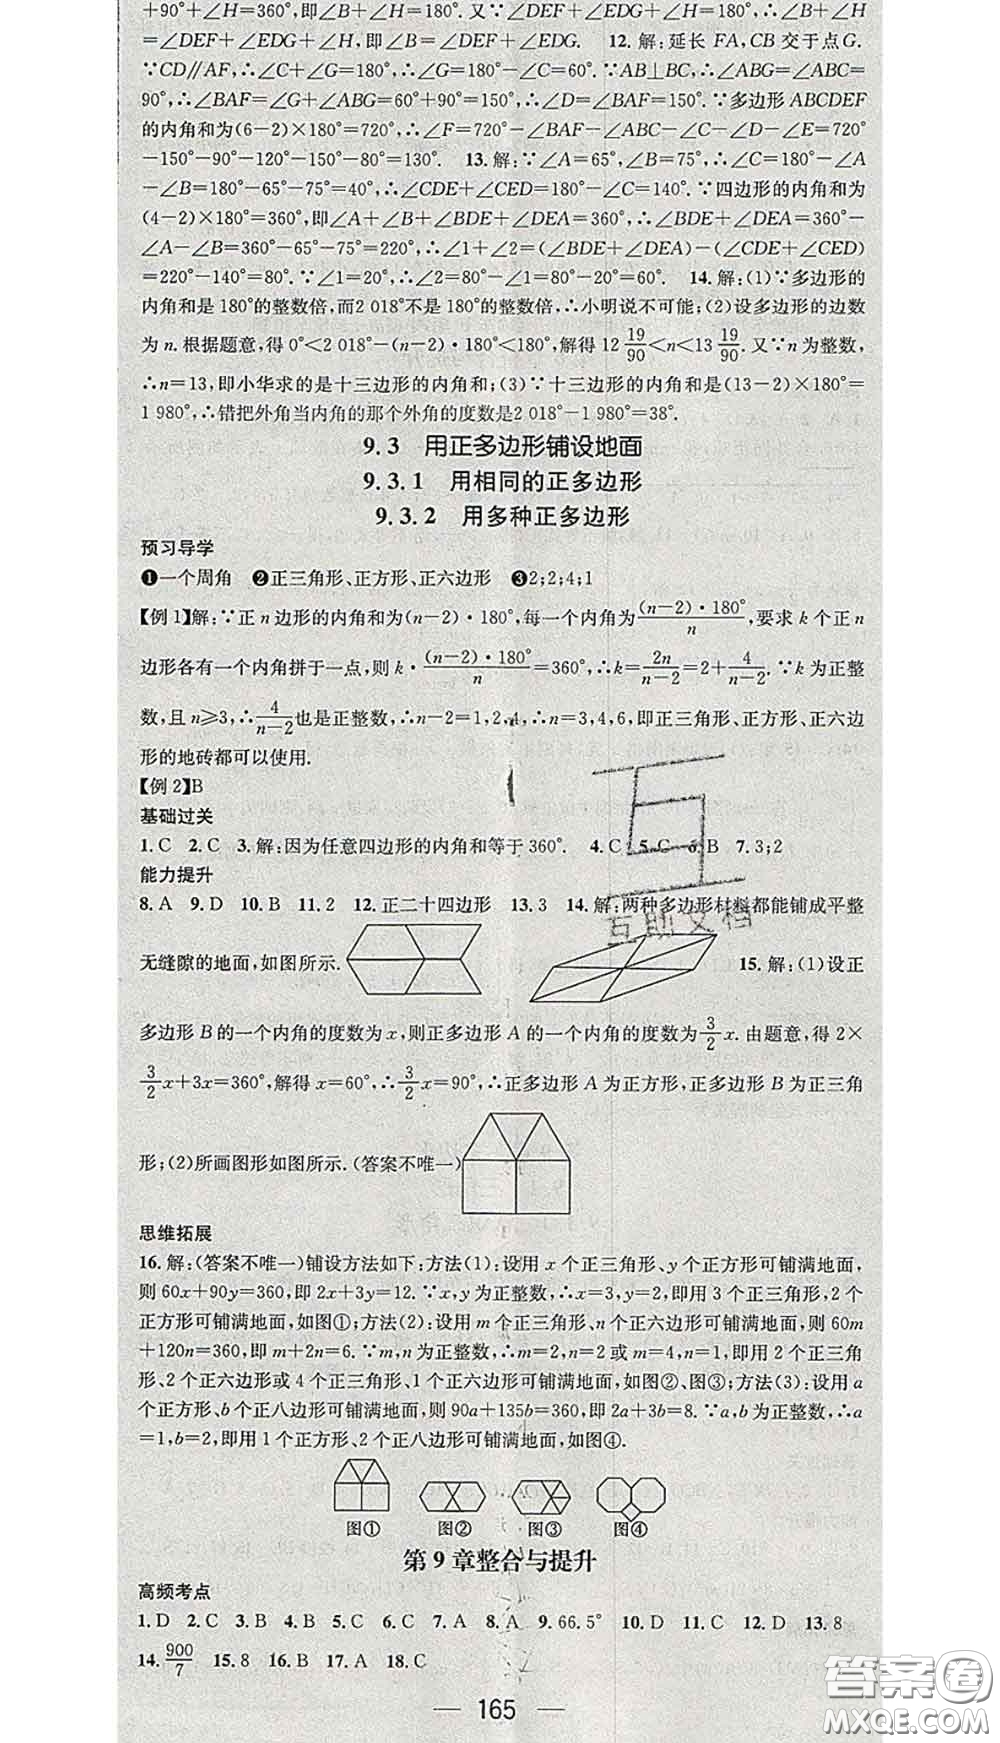 +90°+∠H=360°,即∠B+∠H=180°. 又∵∠DEF+∠EDG=180°,∴∠B+∠H
=∠DEF+∠EDG+∠H,即∠B=∠DEF+∠EDG. 12. 解:延长 FA,CB 交于点G.
∵CD∥AF,∴∠C+∠G=180°,∴∠G=180°-∠C=60°. ∵AB⊥BC,∴∠ABG=∠ABC=
90°,∴∠BAF=∠G+∠ABG=60°+90°=150°,∴∠D=∠BAF=150°. ∵多边形 ABCDEF
的内角和为(6-2)×180°=720°,∴∠F=720°-∠BAF-∠ABC-∠C-∠D-∠E=720°
-150°-90°-120°-150°-80°=130°. 13. 解:∵∠A=65°,∠B=75°,∴∠C=180°-∠A
-∠B=180°-65°-75°=40°,∴∠CDE+∠CED=180°-∠C=140°. ∵四边形的内角和为
(4-2)×180°=360°,即∠A+∠B+∠BDE+∠DEA=360°,∴∠BDE+∠DEA=360°-
∠A-∠B=360°-65°-75°=220°,∴∠1+∠2=(∠BDE+∠DEA)-(∠CDE+∠CED)
=220°-140°=80°. ∵∠1=20°,∴∠2=80°-∠1=80°-20°=60°. 14. 解:(1)∵多边形的
内角和是 180°的整数倍,而2 018°不是 180°的整数倍,∴小明说不可能;(2)设多边形的边数
为 n. 根据题意,得 0°<2 018°-(n-2)·180°<180°,解得 12 19/90<n<13 19/90. 又∵n 为整数,
∴n=13,即小华求的是十三边形的内角和;(3)∵十三边形的内角和是(13-2)×180°=
1 980°,∴错把外角当内角的那个外角的度数是2 018°-1 980°=38°.
9.3 用正多边形铺设地面
9.3.1 用相同的正多边形
9.3.2 用多种正多边形
预习导学
❶一个周角 ❷正三角形、正方形、正六边形 ❸2;2;4;1
【例 1】解:∵正 n 边形的内角和为(n-2)·180°,每一个内角为(n-2)·180°/n,要求 k 个正n
边形各有一个内角拼于一点,则 k·(n-2)·180°/n=360°,∴k=2n/(n-2)=2+4/(n-2). ∵k 为正整
数,且 n⩾3,∴4/(n-2)也是正整数,∴n-2=1,2,4,∴n=3,4,6,即正三角形、正方形、正六边
形的地砖都可以使用.
【例 2】B
基础过关
1. C 2. C 3. 解:因为任意四边形的内角和等于 360°. 4. C 5. C 6. B 7. 3;2
能力提升
8. A 9. D 10. B 11. 2 12. 正二十四边形 13. 3 14. 解:两种多边形材料都能铺成平整
无缝隙的地面,如图所示. 15. 解:(1)设正
多边形 B 的一个内角的度数为 x,则正多边形 A 的一个内角的度数为3/2x. 由题意,得 2×
3/2x+3x=360°,解得 x=60°,∴3/2x=90°,∴正多边形 A 为正方形,正多边形 B 为正三角
形;(2)所画图形如图所示.(答案不唯一)
思维拓展
16. 解:(答案不唯一)铺设方法如下:方法(1):设用 x 个正三角形、y 个正方形可铺满地面,
则 60x+90y=360,即 2x+3y=12. ∵x,y 为正整数,∴x=3,y=2,即用 3 个正三角形,2 个
正方形可铺满地面,如图①;方法(2):设用 m 个正三角形、n 个正六边形可铺满地面,则 60m
+120n=360,即 m+2n=6. ∵m,n 为正整数,∴m=2,n=2 或 m=4,n=1,即用 2 个正三角
形、2 个正六边形或 4 个正三角形、1 个正六边形可铺满地面,如图②、图③;方法(3):设用 a
个正方形、b 个正八边形可铺满地面,则 90a+135b=360,即 2a+3b=8. ∵a,b 为正整数,∴a
=1,b=2,即用 1 个正方形、2 个正八边形可铺满地面,如图④.
图① 图② 图③ 图④
第 9 章整合与提升
高频考点
1. D 2. C 3. B 4. B 5. C 6. C 7. A 8. A 9. 66.5° 10. D 11. C 12. D 13. 8
14. 900/7 15. 8 16. B 17. A 18. C
165
互助文档
答案圈
MXQE.COM